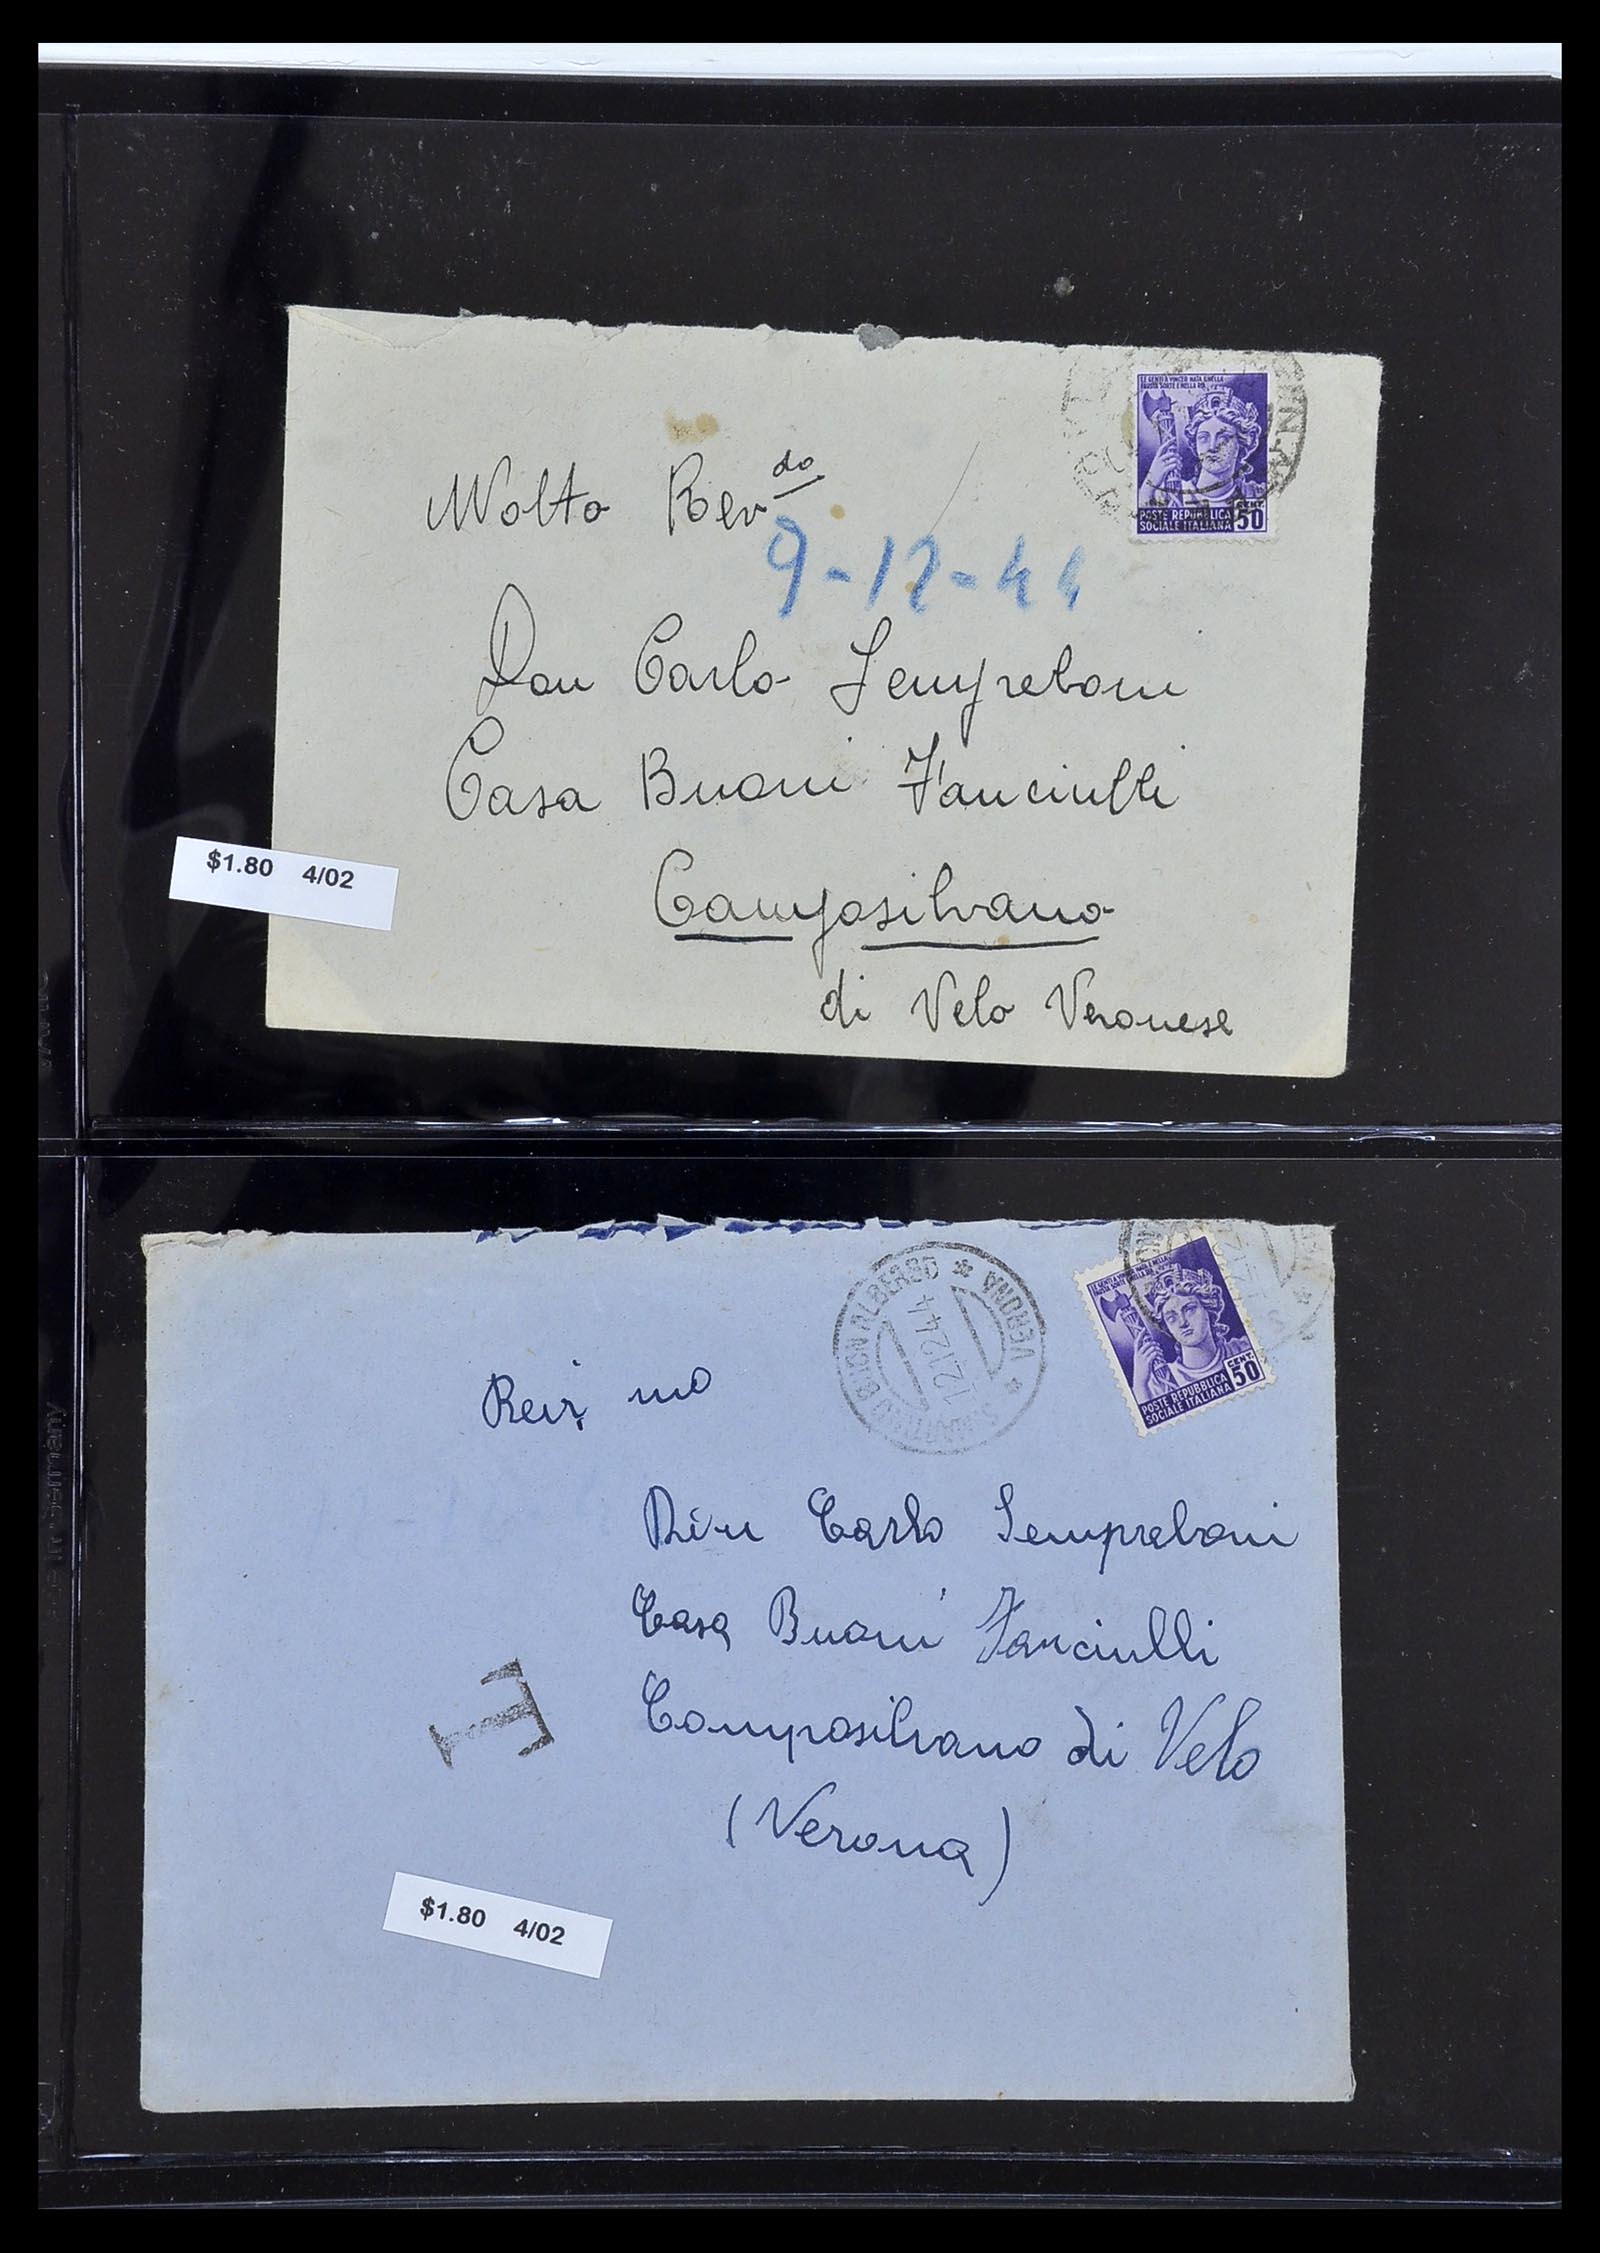 LE GENTI A VINCER NATA E NELLA
FAUSTA SORTE E NELLA RIA
POSTE REPUBBLICA
SOCIALE ITALIANA
CENT.
50
Molto Rev do
9-12-44
Don Carlo Sempreboni
Casa Buoni Fanciulli
$1.80 4/02
Camposilvano
di Velo Veronese
VERONA
12 12 44
POSTE REPUBBLICA
SOCIALE ITALIANA
CENT.
50
Rev. mo
Carlo Sempreboni
Casa Buoni Fanciulli
T
Camposilvano di Velo
(Verona)
$1.80 4/02